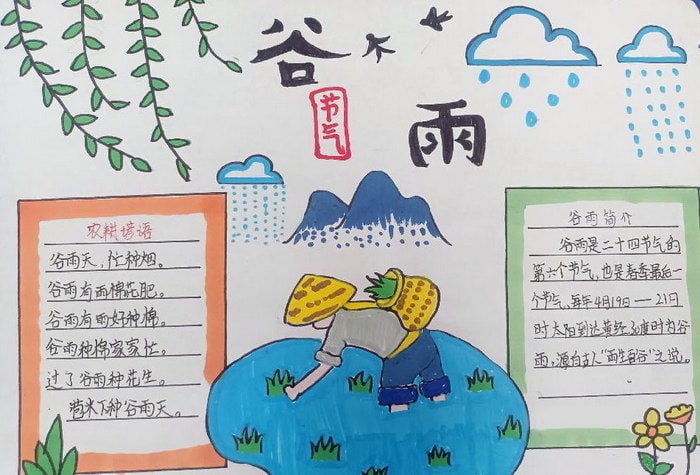 谷
节气
雨
农耕谚语
谷雨天,忙种烟。
谷雨有雨棉花肥。
谷雨有雨好种棉。
谷雨种棉家家忙。
过了谷雨种花生。
苞米下种谷雨天。
谷雨简介
谷雨是二十四节气的
第六个节气,也是春季最后一
个节气,每年4月19日——21日
时太阳到达黄经30度时为谷
雨,源自古人“雨生百谷”之说。